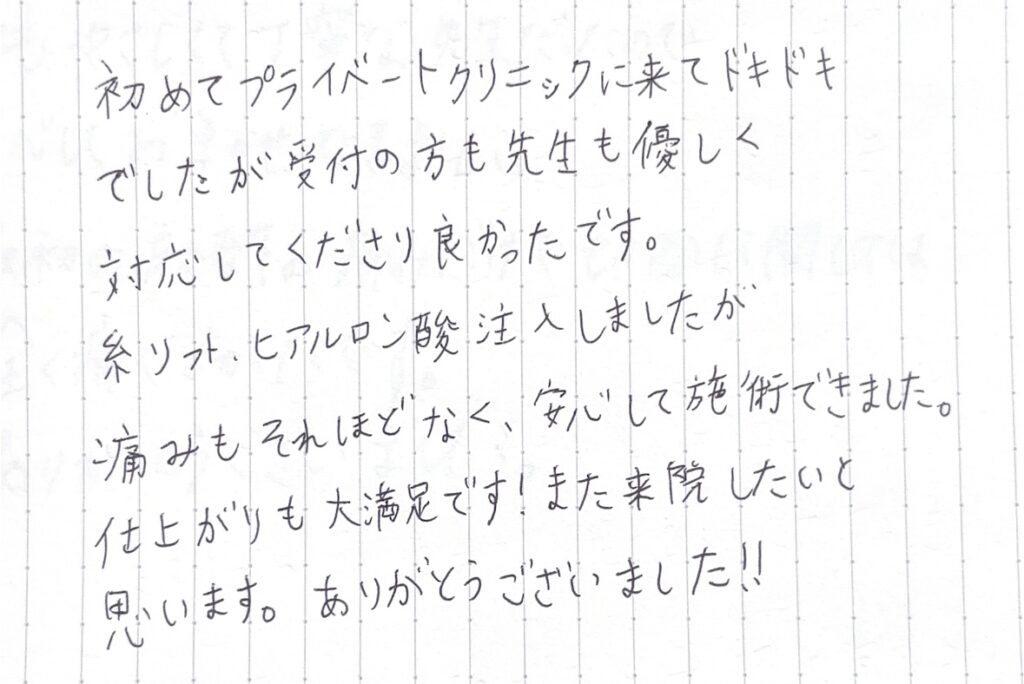 初めてプライベートクリニックに来てドキドキ
でしたが受付の方も先生も優しく
対応してくださり良かったです。
糸リフト、ヒアルロン酸注入しましたが
痛みもそれほどなく、安心して施術できました。
仕上がりも大満足です!また来院したいと
思います。ありがとうございました!!